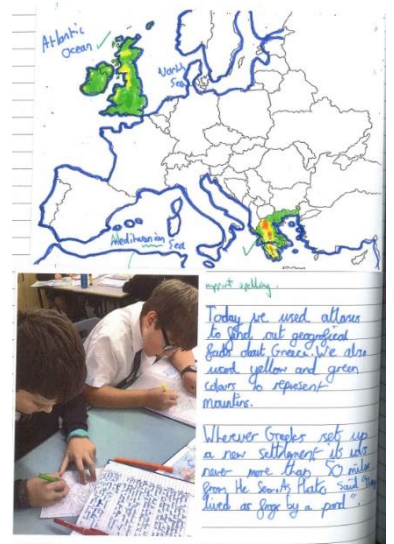 Atlantic
Ocean
North
Sea
Mediteranian Sea
spelling.
Today we used atlases
to find out geografical
facts about Greece. We also
used yellow and green
colours to represent
mountins.
Wherever Greeks set up
a new settlment it was
never more than 50 miles
from the Sea. As Plato said "They
lived as frogs by a pond".